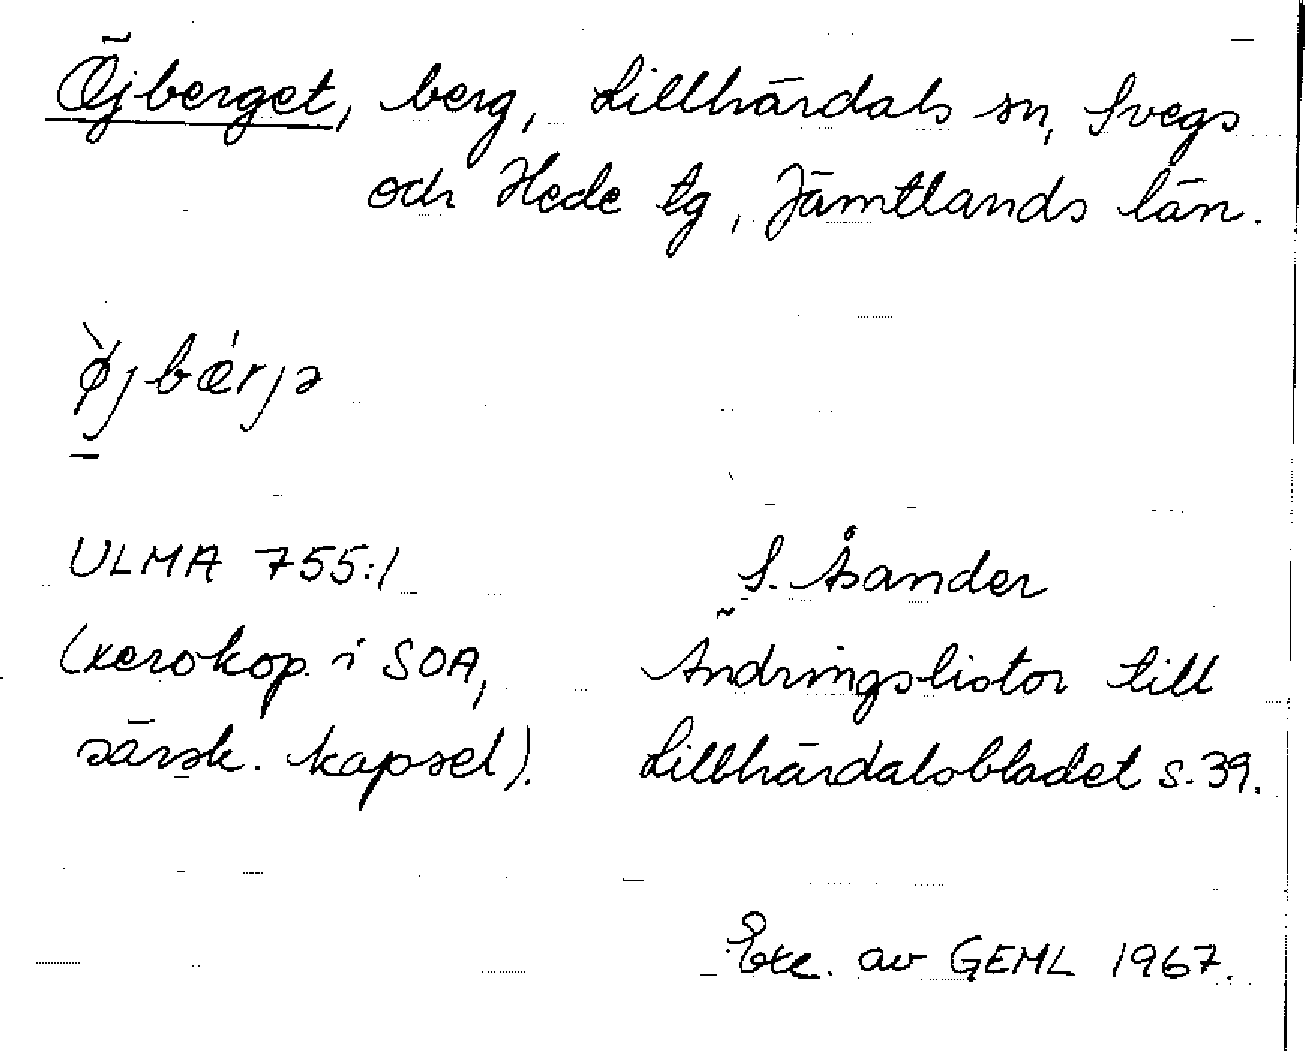 Öjberget, berg, Lillhärdals sn, Svegs
och Hede tg, Jämtlands län.
ø̀jbǽrjə
ULMA 755:1
S. Åsander
(xerokop. i SOA,
Ändringslistor till
särsk. kapsel).
Lillhärdalsbladet s. 39.
Exc. av GEML 1967.